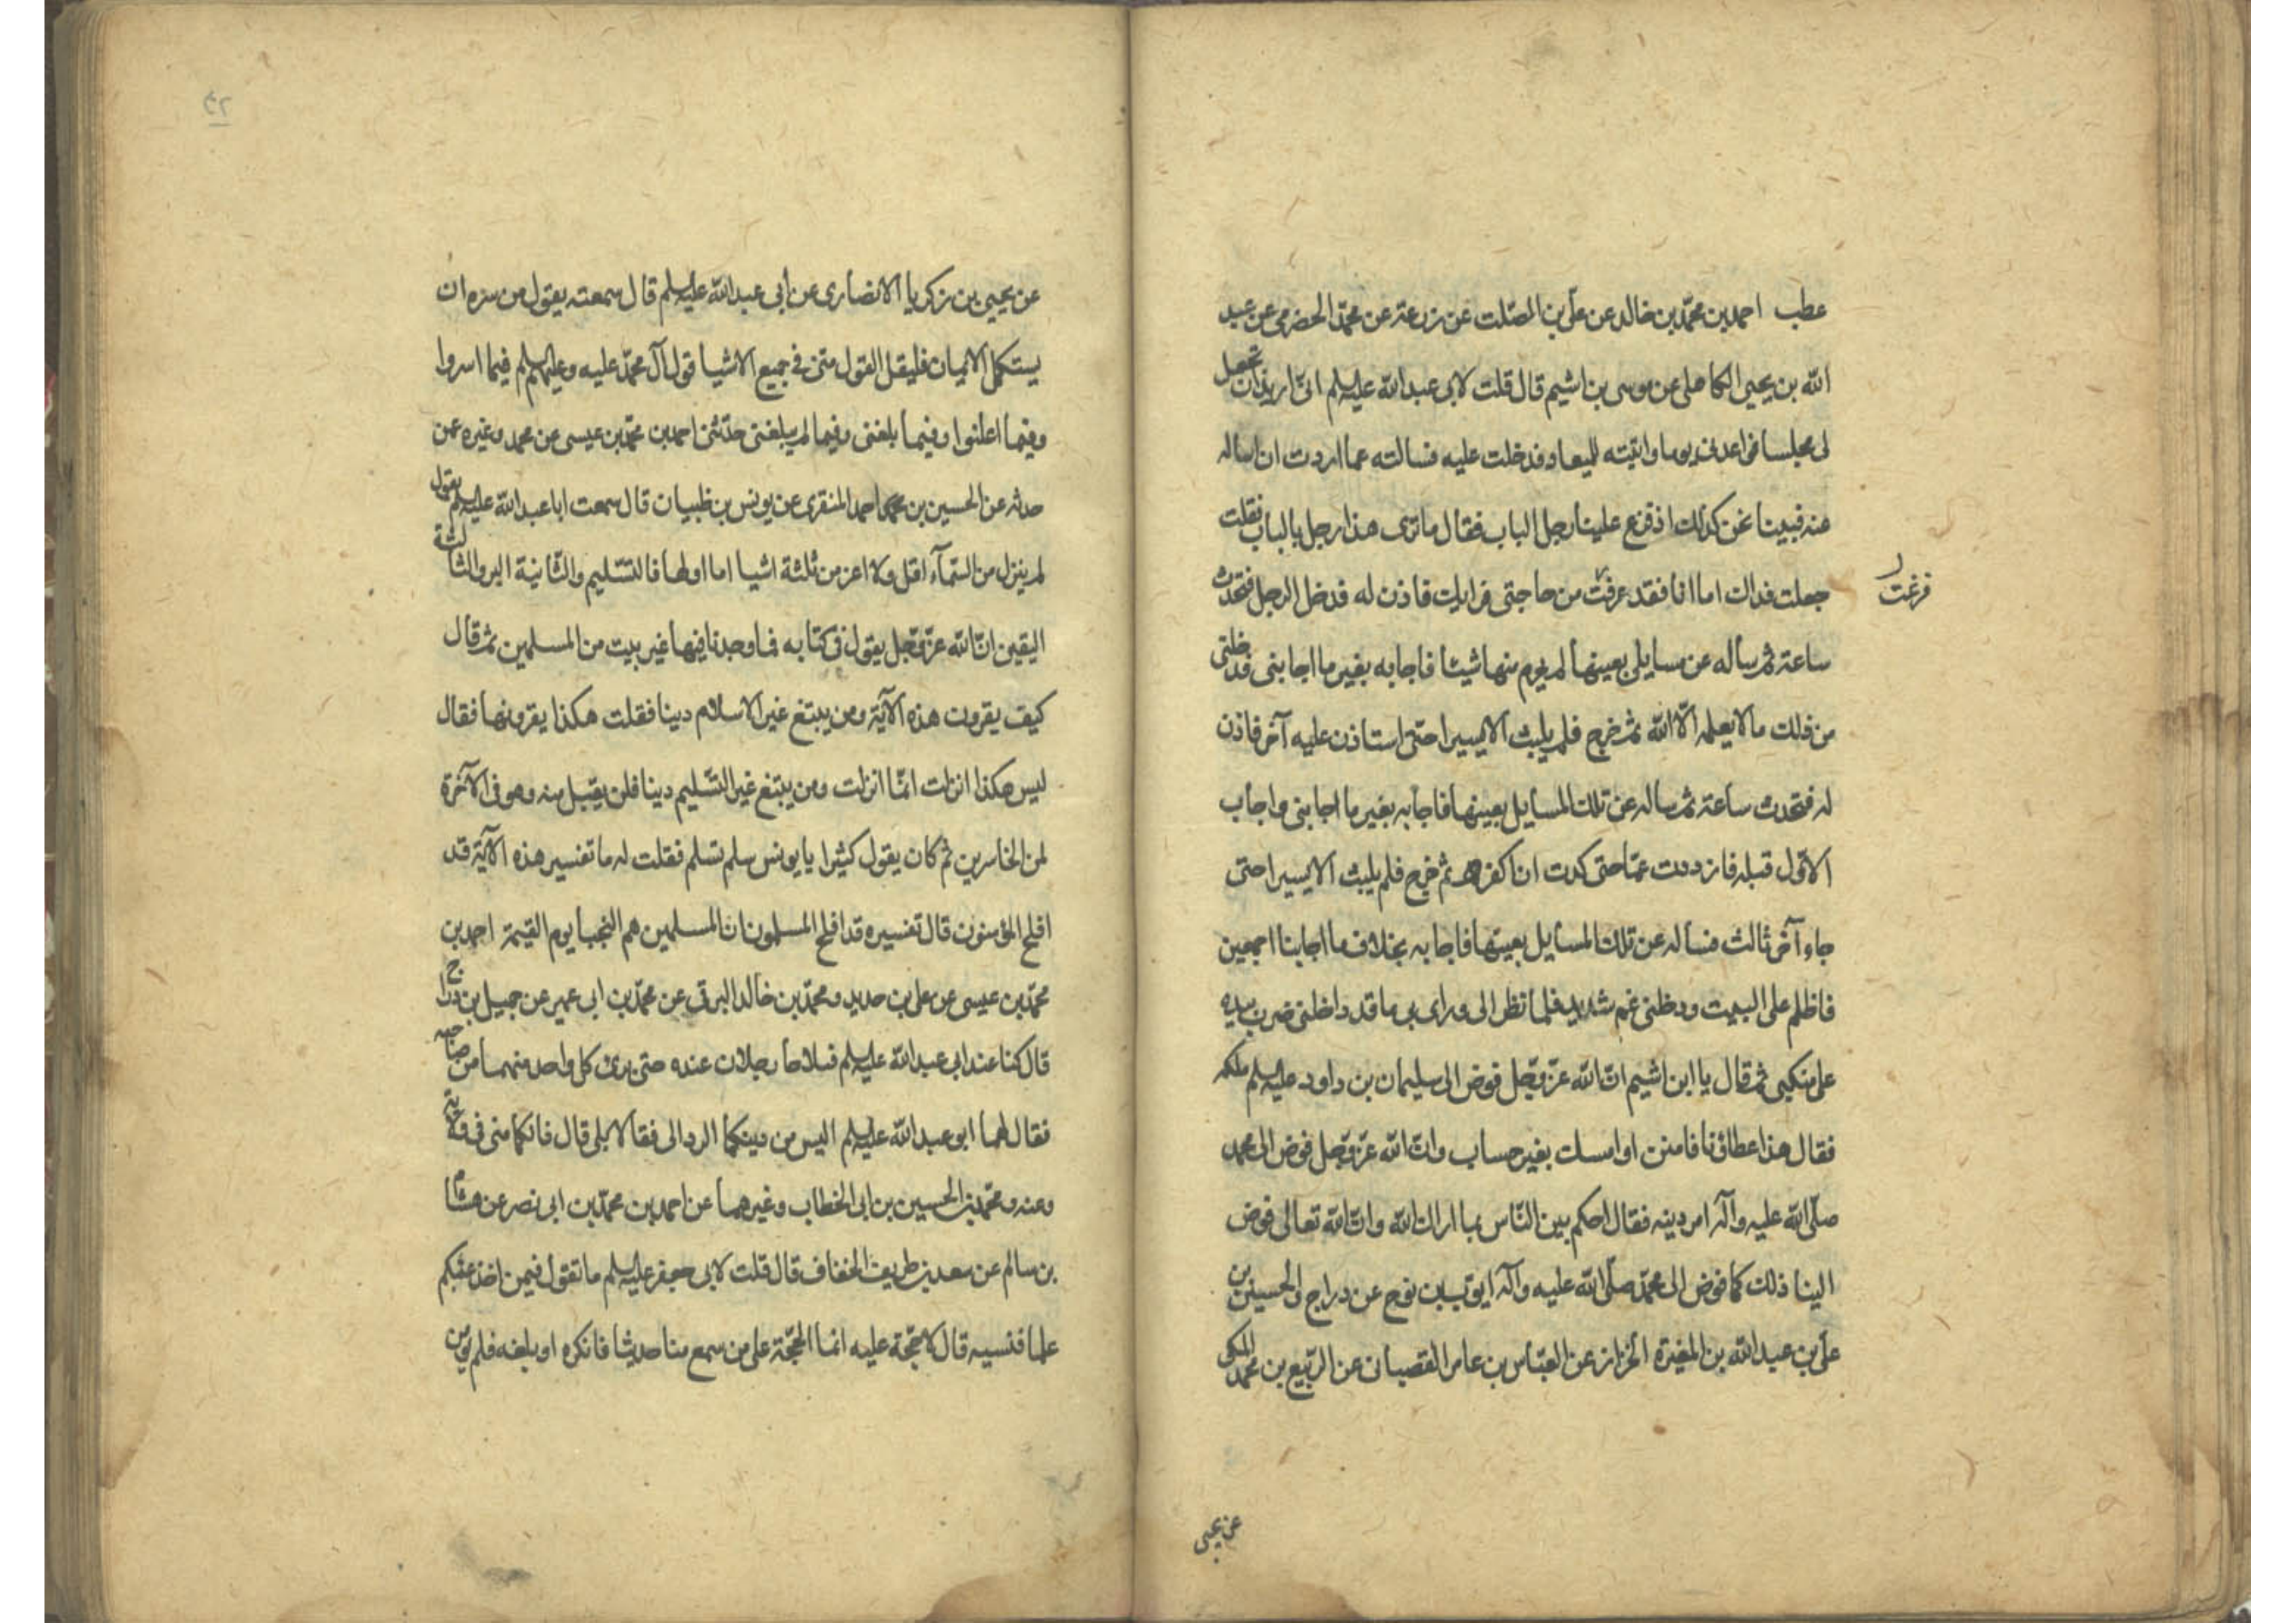 عطب احمد بن محمّد بن خالد عن علّى بن الصّلت عن زرعة عن محمّد الحضرمى عن عبيد
الله بن يحيى الكاهلى عن موسى بن اشيم قال قلت لابى عبدالله عليه السلم انّى اريد ان تجعل
لى مجلسا فواعدنى يوما واتيته للميعاد فدخلت عليه فسالته عما اردت ان اساله
عنه فبينا نحن كذلك اذ قرع علينا رجل الباب فقال ما ترى هذا رجل بالباب فقلت
جعلت فداك اما انا فقد عرفت من حاجتى فرايك فاذن له فدخل الرجل فتحدث
فرغت
ساعة ثم سأله عن مسايلى بعينها لم يخرم منها شيئا فاجابه بغير ما اجابنى فدخلنى
من ذلك ما لا يعلمه الّا الله ثم خرج فلم يلبث الا يسيرا حتى استاذن عليه آخر فاذن
له فتحدث ساعة ثم ساله عن تلك المسايل بعينها فاجابه بغير ما اجابنى واجاب
الاوّل قبله فازددت غمّا حتى كدت ان اكفر ثم خرج فلم يلبث الا يسيرا حتى
جاء آخر ثالث فسأله عن تلك المسايل بعينها فاجابه بخلاف ما اجابنا اجمعين
فاظلم على البيت ودخلنى غم شديد فلما نظر الى وراى بى ما قد داخلنى ضرب بيده
على منكبى ثم قال يا ابن اشيم انّ الله عزّ وجّل فوض الى سليمان بن داود عليه السلم ملكه
فقال هذا عطاؤنا فامنن او امسك بغير حساب وانّ الله عزّ وجّل فوض الى محمد
صلّى الله عليه وآله امر دينه فقال احكم بين النّاس بما اراك الله وانّ الله تعالى فوض
الينا ذلك كما فوض الى محمّد صلّى الله عليه وآله ايوّب بن نوح عن دراج والحسين بن
علّى بن عبدالله بن المغيرة الخزاز عن العبّاس بن عامر القصبانى عن الرّبيع بن محمّد المكى
عن يحيى
عن يحيى بن زكريا الانصارى عن أبى عبدالله عليه السلم قال سمعته يقول من سره ان
يستكمل الايمان فليقل القول منّى فى جميع الاشيا قول آل محمّد عليه وعليهم السلم فيما اسروا
وفيما اعلنوا وفيما بلغنى وفيما لم يبلغنى حدّثنى احمد بن محمّد بن عيسى عن محمد وغيره عمن
حدثه عن الحسين بن احمد المنقرى عن يونس بن ظبيان قال سمعت ابا عبدالله عليه السلم يقول
لم ينزل من السّمآء اقل ولا اعز من ثلثة اشيا اما اولها فالتّسليم والثّانية البر والثالثة
اليقين انّ الله عزّ وجّل يقول فى كتابه فما وجدنا فيها غير بيت من المسلمين ثم قال
كيف يقرون هذه الآية ومن يبتغ غير الاسلام دينا فقلت هكذا يقرونها فقال
ليس هكذا انزلت انمّا انزلت ومن يبتغ غير التّسليم دينا فلن يقبل منه وهو فى الآخرة
لمن الخاسرين ثم كان يقول كثيرا يا يونس سلم تسلم فقلت له ما تفسير هذه الآية قد
افلح المؤمنون قال تفسيره قد افلح المسلمون ان المسلمين هم النجبا يوم القيمة احمد بن
محمّد بن عيسى عن على بن حديد ومحمّد بن خالد البرقى عن محمّد بن ابى عمير عن جميل بن دراج
قال كنا عند ابى عبدالله عليه السلم فتلاحا رجلان عنده حتى برئ كل واحد منهما من صاحبه
فقال لهما ابو عبدالله عليه السلم اليس من دينكما الرد الى فقالا بلى قال فانكما منى فى ولاية
وعنه ومحمّد بن الحسين بن ابى الخطاب وغيرهما عن احمد بن محمّد بن ابى نصر عن هشام
بن سالم عن سعد بن طريف الخفاف قال قلت لابى جعفر عليه السلم ما تقول فيمن اخذ عنكم
علما فنسيه قال لا حجّة عليه انما الحجّة على من سمع منا حديثا فانكره او بلغه فلم يؤمن